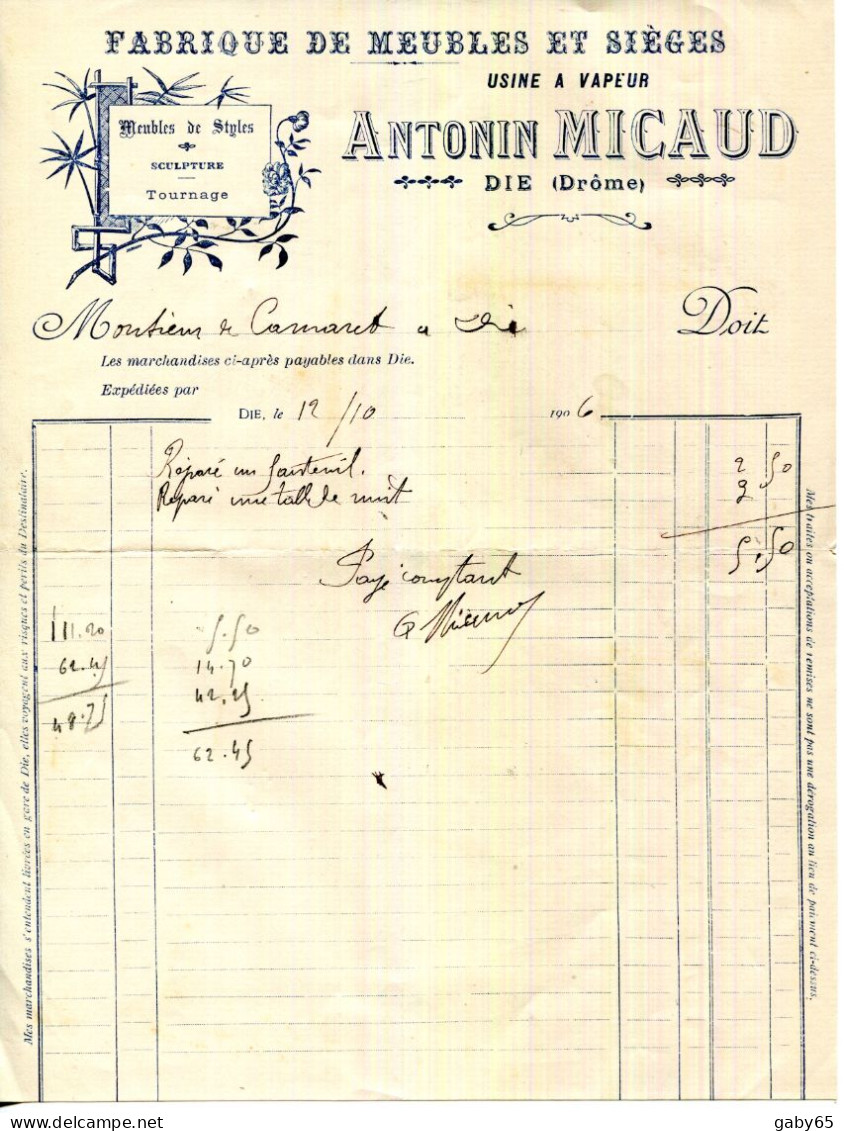 FABRIQUE DE MEUBLES ET SIÈGES
USINE A VAPEUR
Meubles de Styles
SCULPTURE
Tournage
ANTONIN MICAUD
DIE (Drôme)
Monsieur de Camaret a Die
Doit
Les marchandises ci-après payables dans Die.
Expédiées par
DIE, le 12/10 1906
Réparé un fauteuil. 2 50
Réparé une table de nuit 3
5,50
Payé comptant
A Micaud
111.20 5.50
62.45 14.70
42.25
48.75
62.45
Mes marchandises s'entendent livrées en gare de Die, elles voyagent aux risques et périls du Destinataire.
Mes traites ou acceptations de remises ne sont pas une dérogation au lieu de paiement ci-dessus.
delcampe.net
gaby65